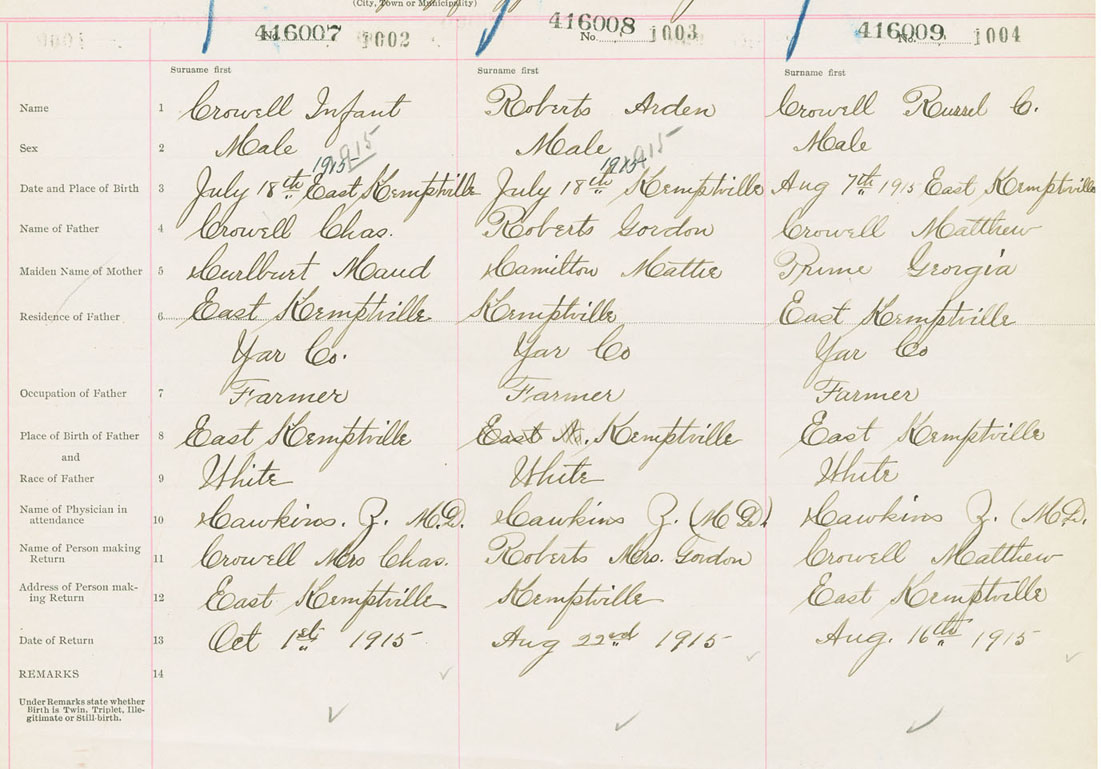 (City, Town or Municipality)
416007 416008 416009
No. 1002 No. 1003 No. 1004
Surname first Surname first Surname first
Name 1 Crowell Infant Roberts Arden Crowell Russel C.
Sex 2 Male Male Male
1915 915 1915 915
Date and Place of Birth 3 July 18th East Kemptville July 18th Kemptville Aug 7th 1915 East Kemptville
Name of Father 4 Crowell Chas. Roberts Gordon Crowell Matthew
Maiden Name of Mother 5 Hurlburt Maud Hamilton Mattie Prime Georgia
Residence of Father 6 East Kemptville Kemptville East Kemptville
Yar Co. Yar Co Yar Co
Occupation of Father 7 Farmer Farmer Farmer
Place of Birth of Father 8 East Kemptville East Kemptville East Kemptville
and
Race of Father 9 White White White
Name of Physician in
attendance 10 Hawkins. Z. M.D. Hawkins Z. (M.D). Hawkins Z. (M.D.
Name of Person making
Return 11 Crowell Mrs Chas. Roberts Mrs. Gordon Crowell Matthew
Address of Person mak-
ing Return 12 East Kemptville Kemptville East Kemptville
Date of Return 13 Oct 1st 1915 Aug 22nd 1915 Aug. 16th 1915
REMARKS 14
Under Remarks state whether
Birth is Twin, Triplet, Ille-
gitimate or Still-birth.